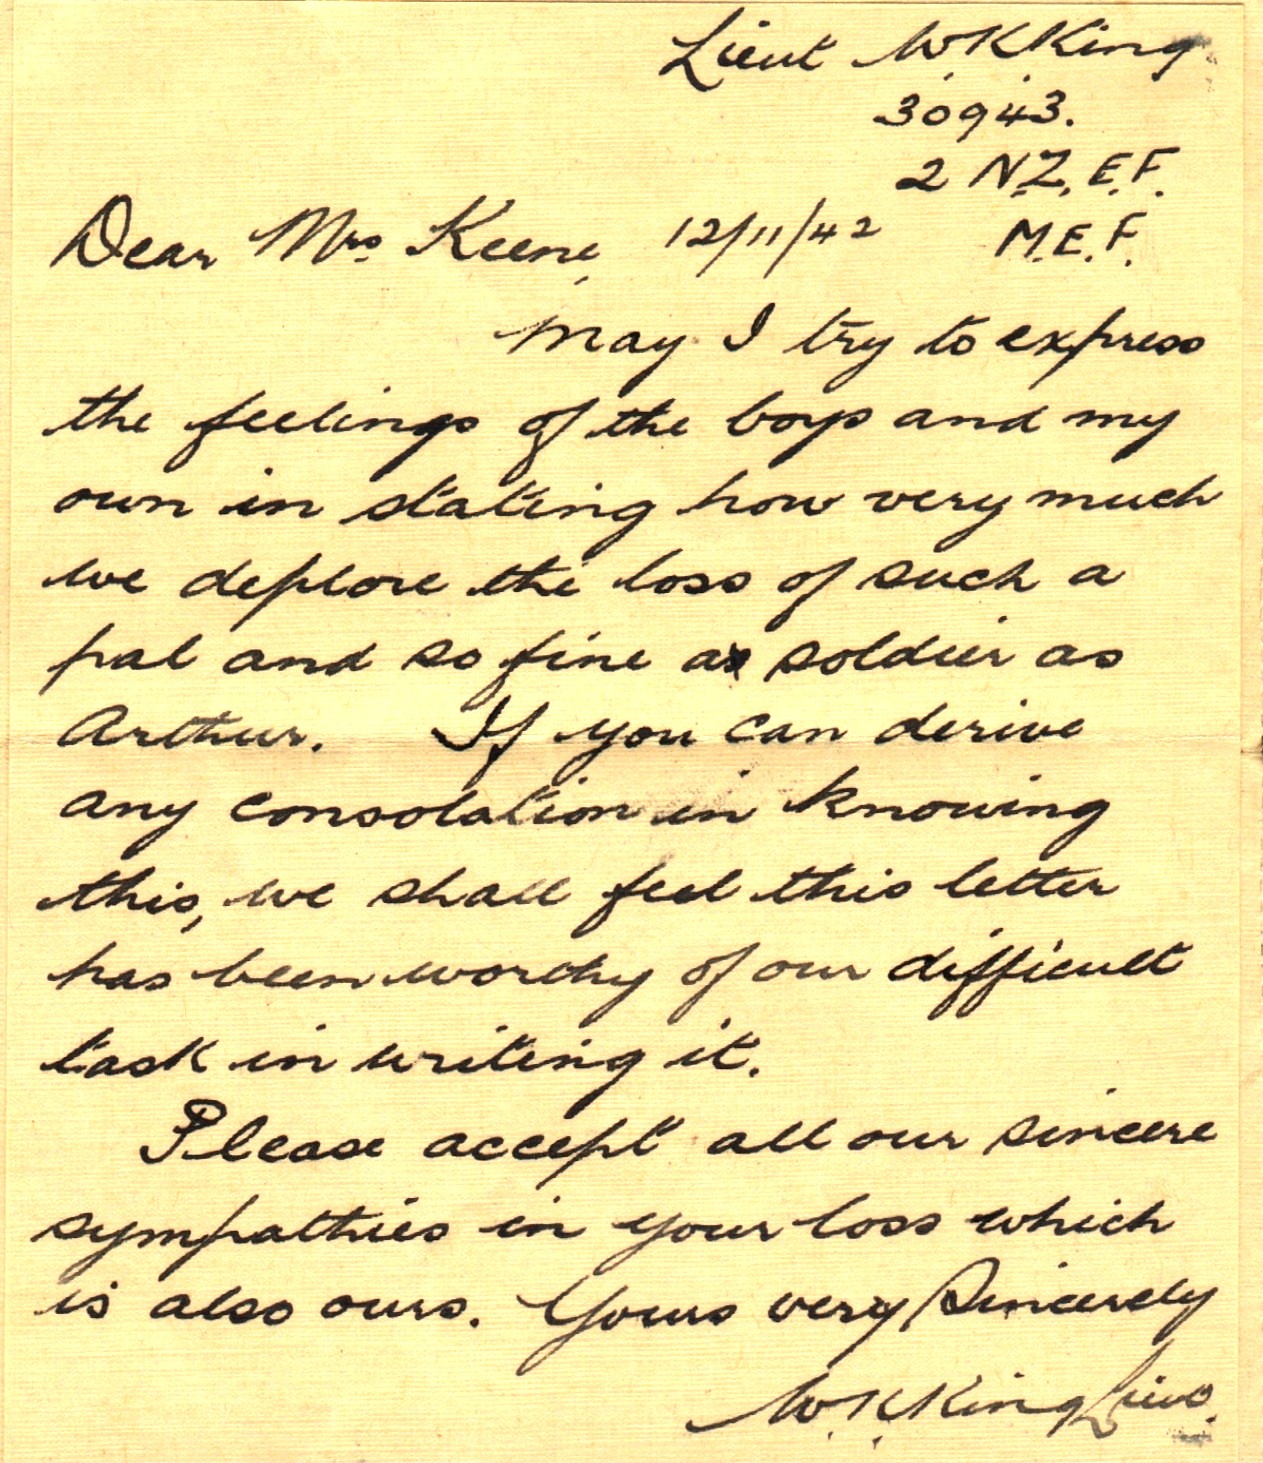 Lieut W.K.King
30943.
2 N.Z.E.F.
Dear Mrs. Keene, 12/11/42 M.E.F.
May I try to express
the feelings of the boys and my
own in stating how very much
we deplore the loss of such a
pal and so fine a soldier as
Arthur. If you can derive
any consolation in knowing
this, we shall feel this letter
has been worthy of our difficult
task in writing it.
Please accept all our sincere
sympathies in your loss which
is also ours. Yours very Sincerely
W.K.King